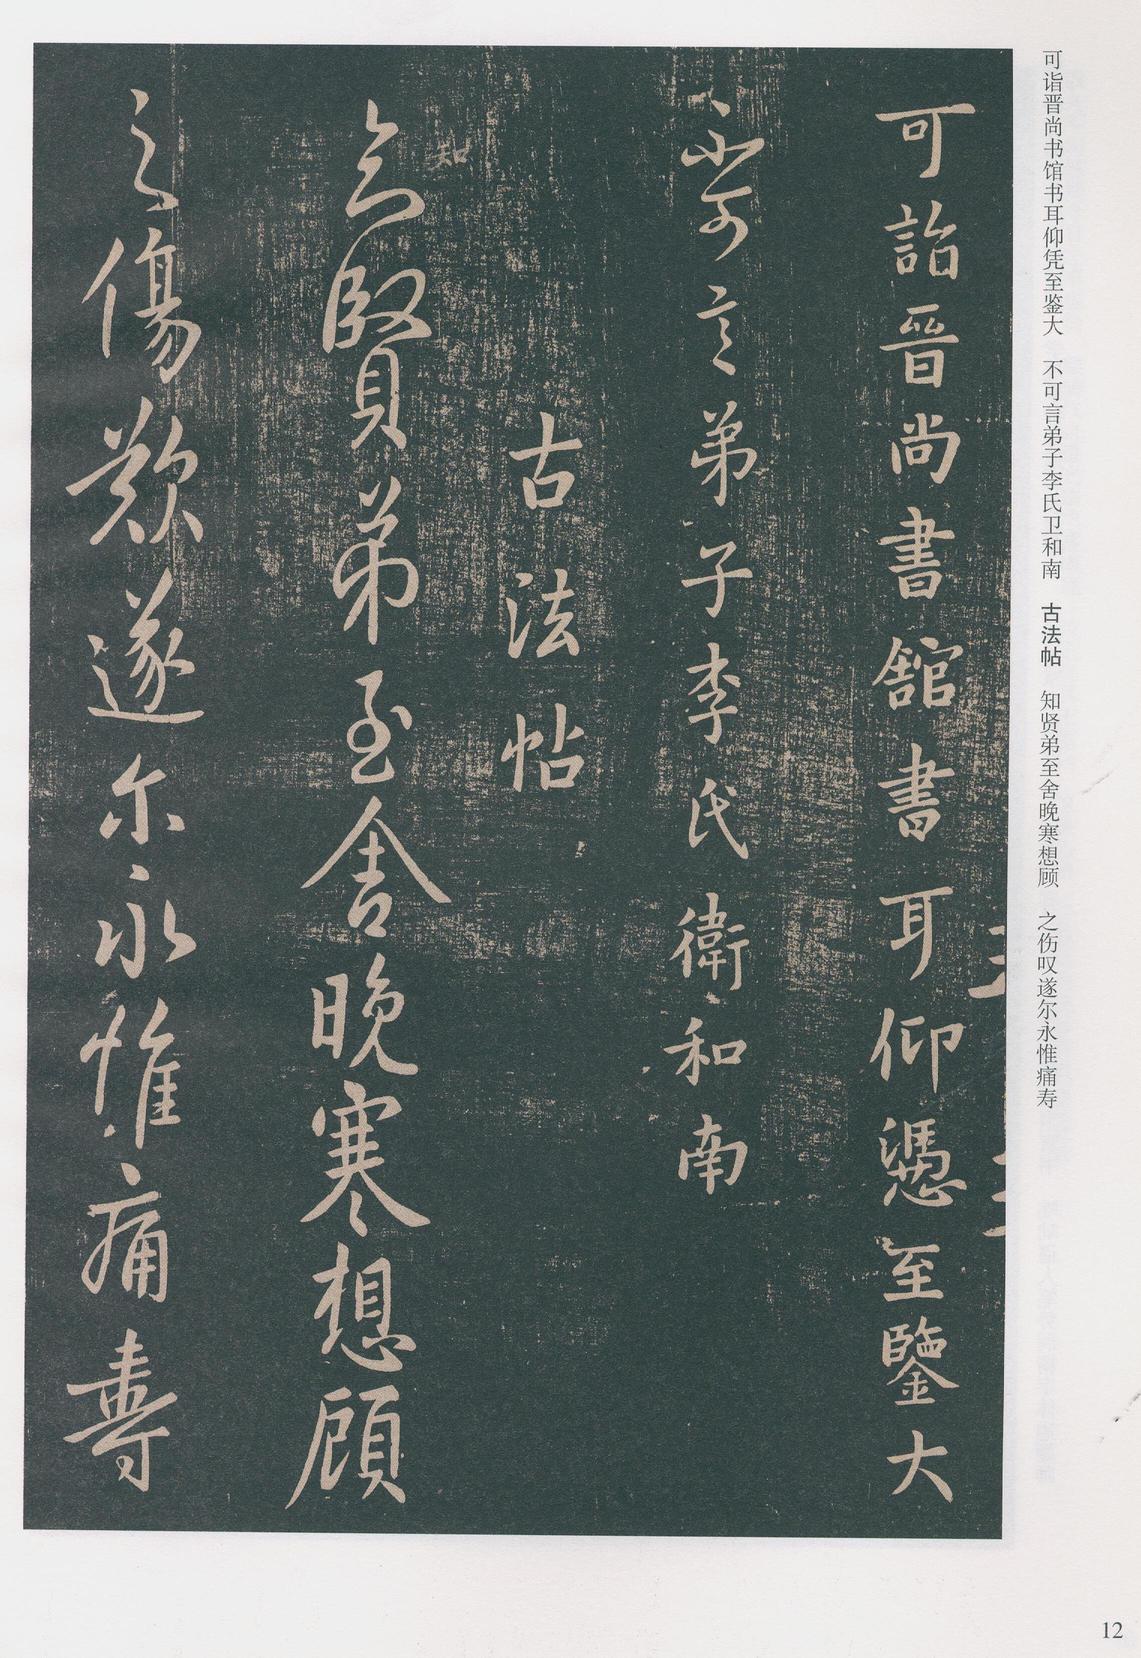 可诣晋尚书馆书耳仰凭至鉴大　不可言弟子李氏卫和南　古法帖　知贤弟至舍晚寒想顾　之伤叹遂尔永惟痛寿
可詣晉尚書舘書耳仰憑至鑒大
不可言弟子李氏衛和南
古法帖
知
知賢弟至舍晚寒想顧
之傷歎遂尔永惟痛壽
12